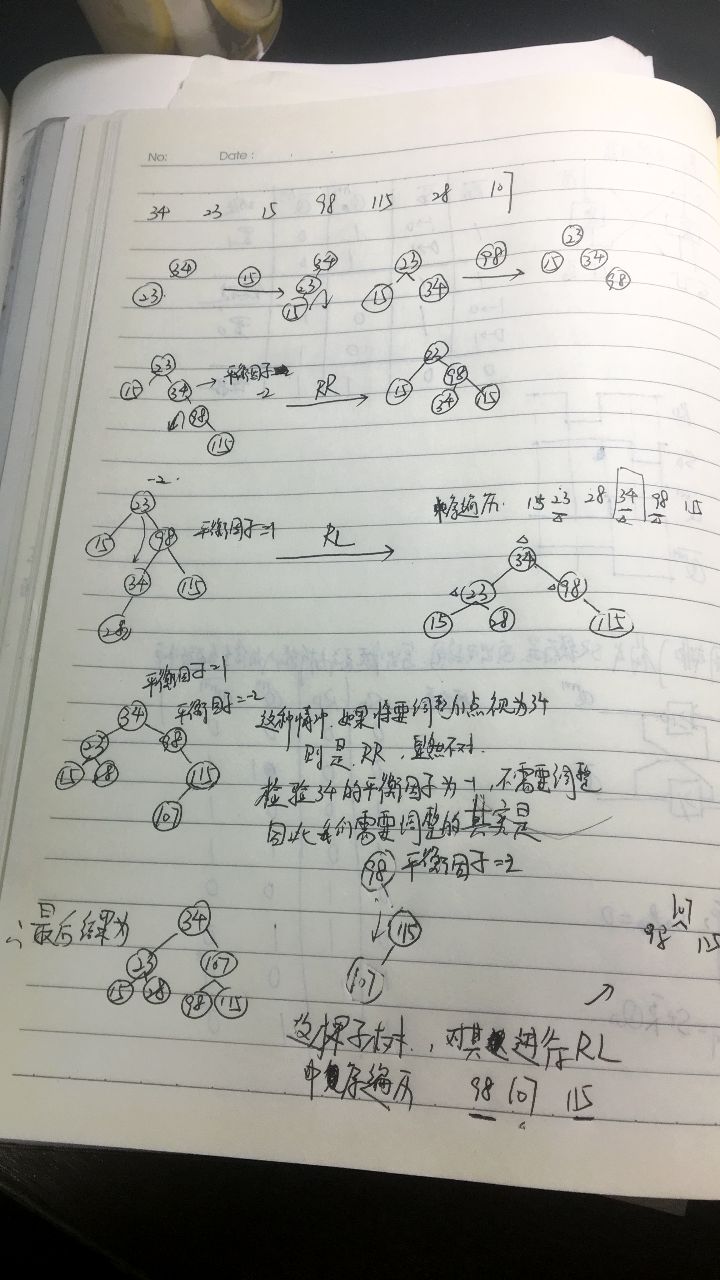 No: Date :
34 23 15 98 115 28 107
34 23 15 34 23 15 23 15 34 98 23 15 34 98
23 15 34 98 115 平衡因子 -2 RR 23 15 98 34 115
-2
23 15 98 34 115 28 平衡因子=1 RL
中序遍历 15 23 28 34 98 115
34 23 98 15 28 115
平衡因子=-1
平衡因子=-2
34 23 98 15 28 115 107
这种情况,如果将要调整的点视为34
则是RR,显然不对.
检验34的平衡因子为-1,不需要调整
因此我们需要调整的其实是
98 平衡因子=-2
115
107
∴最后结果为 34 23 107 15 28 98 115
107
98 115
这棵子树,对其进行RL
中序遍历 98 107 115